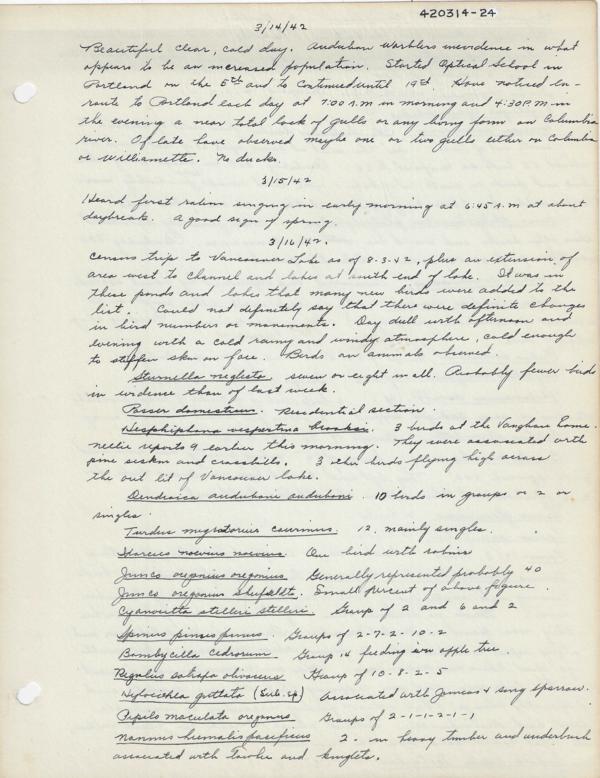 420314-24
3/14/42
Beautiful clear, cold day. Audubon Warblers in evidence in what
appears to be an increased population. Started Optical School in
Portland on the 5th and to continued until 19th. Have noticed en-
route to Portland each day at 7:00 A.M in morning and 4:30 P.M in
the evening a near total lack of gulls or any living form on Columbia
river. Of late have observed maybe one or two gulls either on Columbia
or Williamette. No ducks.
3/15/42
Heard first robin singing in early morning at 6:45 A.M at about
daybreak. A good sign of spring.
3/16/42.
Census trip to Vancouver Lake as of 8-3-42, plus an extension of
area west to channel and lakes at south end of lake. It was in
these ponds and lakes that many new birds were added to the
list. Could not definitely say that there were definite changes
in bird numbers or movements. Day dull with afternoon and
evening with a cold rainy and windy atmosphere, cold enough
to stiffen skin on face. Birds an animals observed.
Sturnella neglecta seven or eight in all. Probably fewer birds
in evidence than of last week.
Passer domesticus. Residential section.
Hesphiphona vespertina brooksi. 3 birds at the Vaughan home.
Nellie reports 9 earlier this morning. They were associated with
pine siskin and crossbills. 3 other birds flying high across
the out lit of Vancouver lake.
Dendroica auduboni auduboni. 10 birds in groups or 2 or
singles.
Turdus migratorius caurinus. 12. mainly singles.
Ixoreus naevius naevius. One bird with robins
Junco oreganus oreganus Generally represented probably 40
Junco oreganus shufeldti. Small percent of above figure.
Cyanocitta stelleri stelleri. Group of 2 and 6 and 2
Spinus pinus pinus. Groups of 2-7-2-10-2
Bombycilla cedrorum Group 14 feeding in apple tree.
Regulus satrapa olivaceus Group of 10-8-2-5
Hylocichla guttata (Sub. sp) Associated with Juncos & song sparrow.
Pipilo maculata oregonus Groups of 2-1-1-2-1-1
Nannus hiemalis pacificus 2- in heavy timber and underbush
associated with Towhee and kinglets.